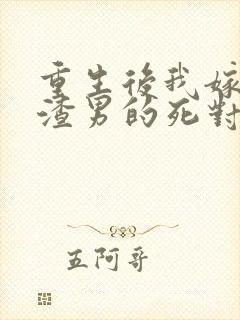 重生後我嫁
渣男的死對
五阿哥